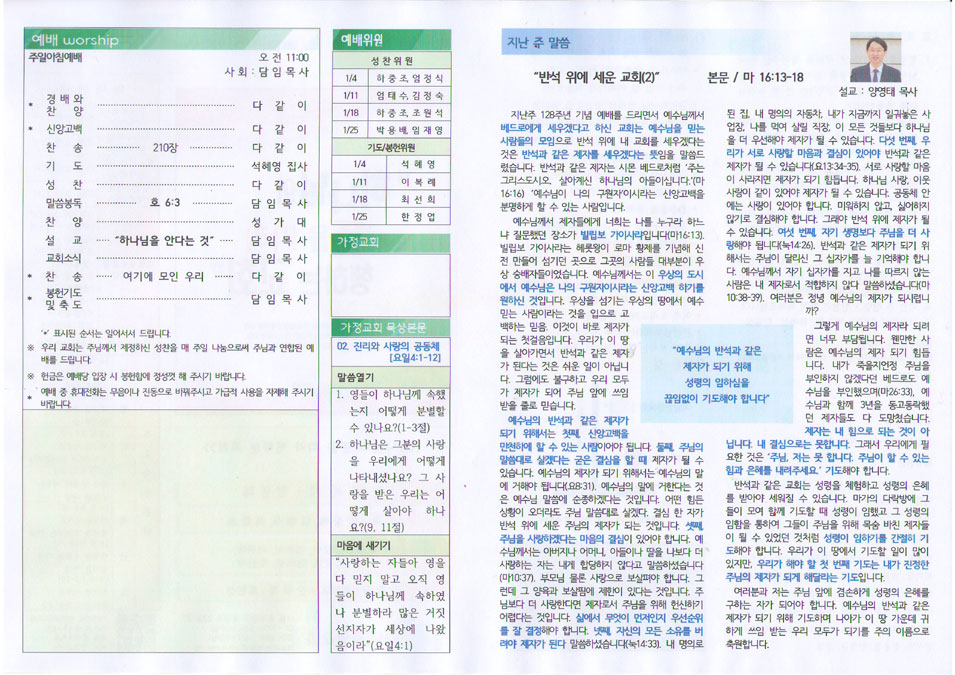 예배 worship
주일아침예배
오 전 11:00
사 회 : 담 임 목 사
* 경 배 와 찬 양 다 같 이
* 신앙고백 다 같 이
찬 송 210장 다 같 이
기 도 석혜영 집사
성 찬 다 같 이
말씀봉독 호 6:3 담 임 목 사
찬 양 성 가 대
설 교 "하나님을 안다는 것" 담 임 목 사
교회소식 담 임 목 사
* 찬 송 여기에 모인 우리 다 같 이
* 봉헌기도 및 축 도 담 임 목 사
'*' 표시된 순서는 일어서서 드립니다.
※ 우리 교회는 주님께서 제정하신 성찬을 매 주일 나눔으로써 주님과 연합된 예
배를 드립니다.
※ 헌금은 예배당 입장 시 봉헌함에 정성껏 해 주시기 바랍니다.
* 예배 중 휴대전화는 무음이나 진동으로 바꿔주시고 가급적 사용을 자제해 주시기
바랍니다.
예배위원
성 찬 위 원
1/4 하 중 조, 엄 정 식
1/11 엄 태 수, 김 정 숙
1/18 하 중 조, 조 원 석
1/25 박 용 배, 임 재 영
기도/봉헌위원
1/4 석 혜 영
1/11 이 복 례
1/18 최 선 희
1/25 한 정 업
가정교회
가정교회 묵상본문
02. 진리와 사랑의 공동체
[요일4:1-12]
말씀열기
1. 영들이 하나님께 속했
는지 어떻게 분별할
수 있나요?(1-3절)
2. 하나님은 그분의 사랑
을 우리에게 어떻게
나타내셨나요? 그 사
랑을 받은 우리는 어
떻게 살아야 하나
요?(9, 11절)
마음에 새기기
"사랑하는 자들아 영을
다 믿지 말고 오직 영
들이 하나님께 속하였
나 분별하라 많은 거짓
선지자가 세상에 나왔
음이라"(요일4:1)
지난 주 말씀
"반석 위에 세운 교회(2)" 본문 / 마 16:13-18
설교 : 양명태 목사
지난주 128주년 기념 예배를 드리면서 예수님께서
베드로에게 세우겠다고 하신 교회는 예수님을 믿는
사람들의 모임으로 반석 위에 내 교회를 세우겠다는
것은 반석과 같은 제자를 세우겠다는 뜻임을 말씀드
렸습니다. 반석과 같은 제자는 시몬 베드로처럼 '주는
그리스도시오, 살아계신 하나님의 아들이십니다.'(마
16:16). '예수님이 나의 구원자'이시라는 신앙고백을
분명하게 할 수 있는 사람입니다.
예수님께서 제자들에게 너희는 나를 누구라 하느
냐 질문했던 장소가 빌립보 가이사랴입니다(마16:13).
빌립보 가이사랴는 헤롯왕이 로마 황제를 기념해 신
전 만들어 섬기던 곳으로 그곳의 사람들 대부분이 우
상 숭배자들이었습니다. 예수님께서는 이 우상의 도시
에서 예수님은 나의 구원자이시라는 신앙고백 하기를
원하신 것입니다. 우상을 섬기는 우상의 땅에서 예수
믿는 사람이라는 것을 입으로 고
백하는 믿음. 이것이 바로 제자가
되는 첫걸음입니다. 우리가 이 땅
을 살아가면서 반석과 같은 제자
가 된다는 것은 쉬운 일이 아닙니
다. 그럼에도 불구하고 우리 모두
가 제자가 되어 주님 앞에 쓰임
받을 줄로 믿습니다.
예수님의 반석과 같은 제자가
되기 위해서는 첫째, 신앙고백을
만천하에 할 수 있는 사람이어야 됩니다. 둘째, 주님의
말씀대로 살겠다는 굳은 결심을 할 때 제자가 될 수
있습니다. 예수님의 제자가 되기 위해서는 예수님의 말
에 거해야 됩니다(요8:31). 예수님의 말에 거한다는 것
은 예수님 말씀에 순종하겠다는 것입니다. 어떤 힘든
상황이 오더라도 주님 말씀대로 살겠다. 결심 한 자가
반석 위에 세운 주님의 제자가 되는 것입니다. 셋째,
주님을 사랑하겠다는 마음의 결심이 있어야 합니다. 예
수님께서는 아버지나 어머니, 아들이나 딸을 나보다 더
사랑하는 자는 내게 합당하지 않다고 말씀하셨습니다
(마10:37). 부모님 물론 사랑으로 보살펴야 합니다. 그
런데 그 양육과 보살핌에 제한이 있다는 것입니다. 주
님보다 더 사랑한다면 제자로서 주님을 위해 헌신하기
어렵다는 것입니다. 삶에서 무엇이 먼저인지 우선순위
를 잘 결정해야 합니다. 넷째, 자신의 모든 소유를 버
려야 제자가 된다 말씀하셨습니다(눅14:33). 내 명의로
된 집, 내 명의의 자동차, 내가 지금까지 일궈놓은 사
업장, 나를 먹여 살릴 직장, 이 모든 것들보다 하나님
을 더 우선해야 제자가 될 수 있습니다. 다섯 번째, 우
리가 서로 사랑할 마음과 결심이 있어야 반석과 같은
제자가 될 수 있습니다(요13:34-35). 서로 사랑할 마음
이 사라지면 제자가 되기 힘듭니다. 하나님 사랑, 이웃
사랑이 같이 있어야 제자가 될 수 있습니다. 공동체 안
에는 사랑이 있어야 합니다. 미워하지 않고, 싫어하지
않기로 결심해야 합니다. 그래야 반석 위에 제자가 될
수 있습니다. 여섯 번째, 자기 생명보다 주님을 더 사
랑해야 됩니다(눅14:26). 반석과 같은 제자가 되기 위
해서는 주님이 달리신 그 십자가를 늘 기억해야 합니
다. 예수님께서 자기 십자가를 지고 나를 따르지 않는
사람은 내 제자로서 적합하지 않다 말씀하셨습니다(마
10:38-39). 여러분은 정녕 예수님의 제자가 되시렵니
까?
그렇게 예수님의 제자라 되려
면 너무 부담됩니다. 웬만한 사
람은 예수님의 제자 되기 힘듭
니다. 내가 죽을지언정 주님을
부인하지 않겠다던 베드로도 예
수님을 부인했으며(마26:33), 예
수님과 함께 3년을 동고동락했
던 제자들도 다 도망쳤습니다.
제자는 내 힘으로 되는 것이 아
닙니다. 내 결심으로는 못합니다. 그래서 우리에게 필
요한 것은 '주님, 저는 못 합니다. 주님이 할 수 있는
힘과 은혜를 내려주세요.' 기도해야 합니다.
반석과 같은 교회는 성령을 체험하고 성령의 은혜
를 받아야 세워질 수 있습니다. 마가의 다락방에 그
들이 모여 함께 기도할 때 성령이 임했고 그 성령의
임함을 통하여 그들이 주님을 위해 목숨 바친 제자들
이 될 수 있었던 것처럼 성령이 임하기를 간절히 기
도해야 합니다. 우리가 이 땅에서 기도할 일이 많이
있지만, 우리가 해야 할 첫 번째 기도는 내가 진정한
주님의 제자가 되게 해달라는 기도입니다.
여러분과 저는 주님 앞에 겸손하게 성령의 은혜를
구하는 자가 되어야 합니다. 예수님의 반석과 같은
제자가 되기 위해 기도하며 나아가 이 땅 가운데 귀
하게 쓰임 받는 우리 모두가 되기를 주의 이름으로
축원합니다.
"예수님의 반석과 같은
제자가 되기 위해
성령의 임하심을
끊임없이 기도해야 합니다"